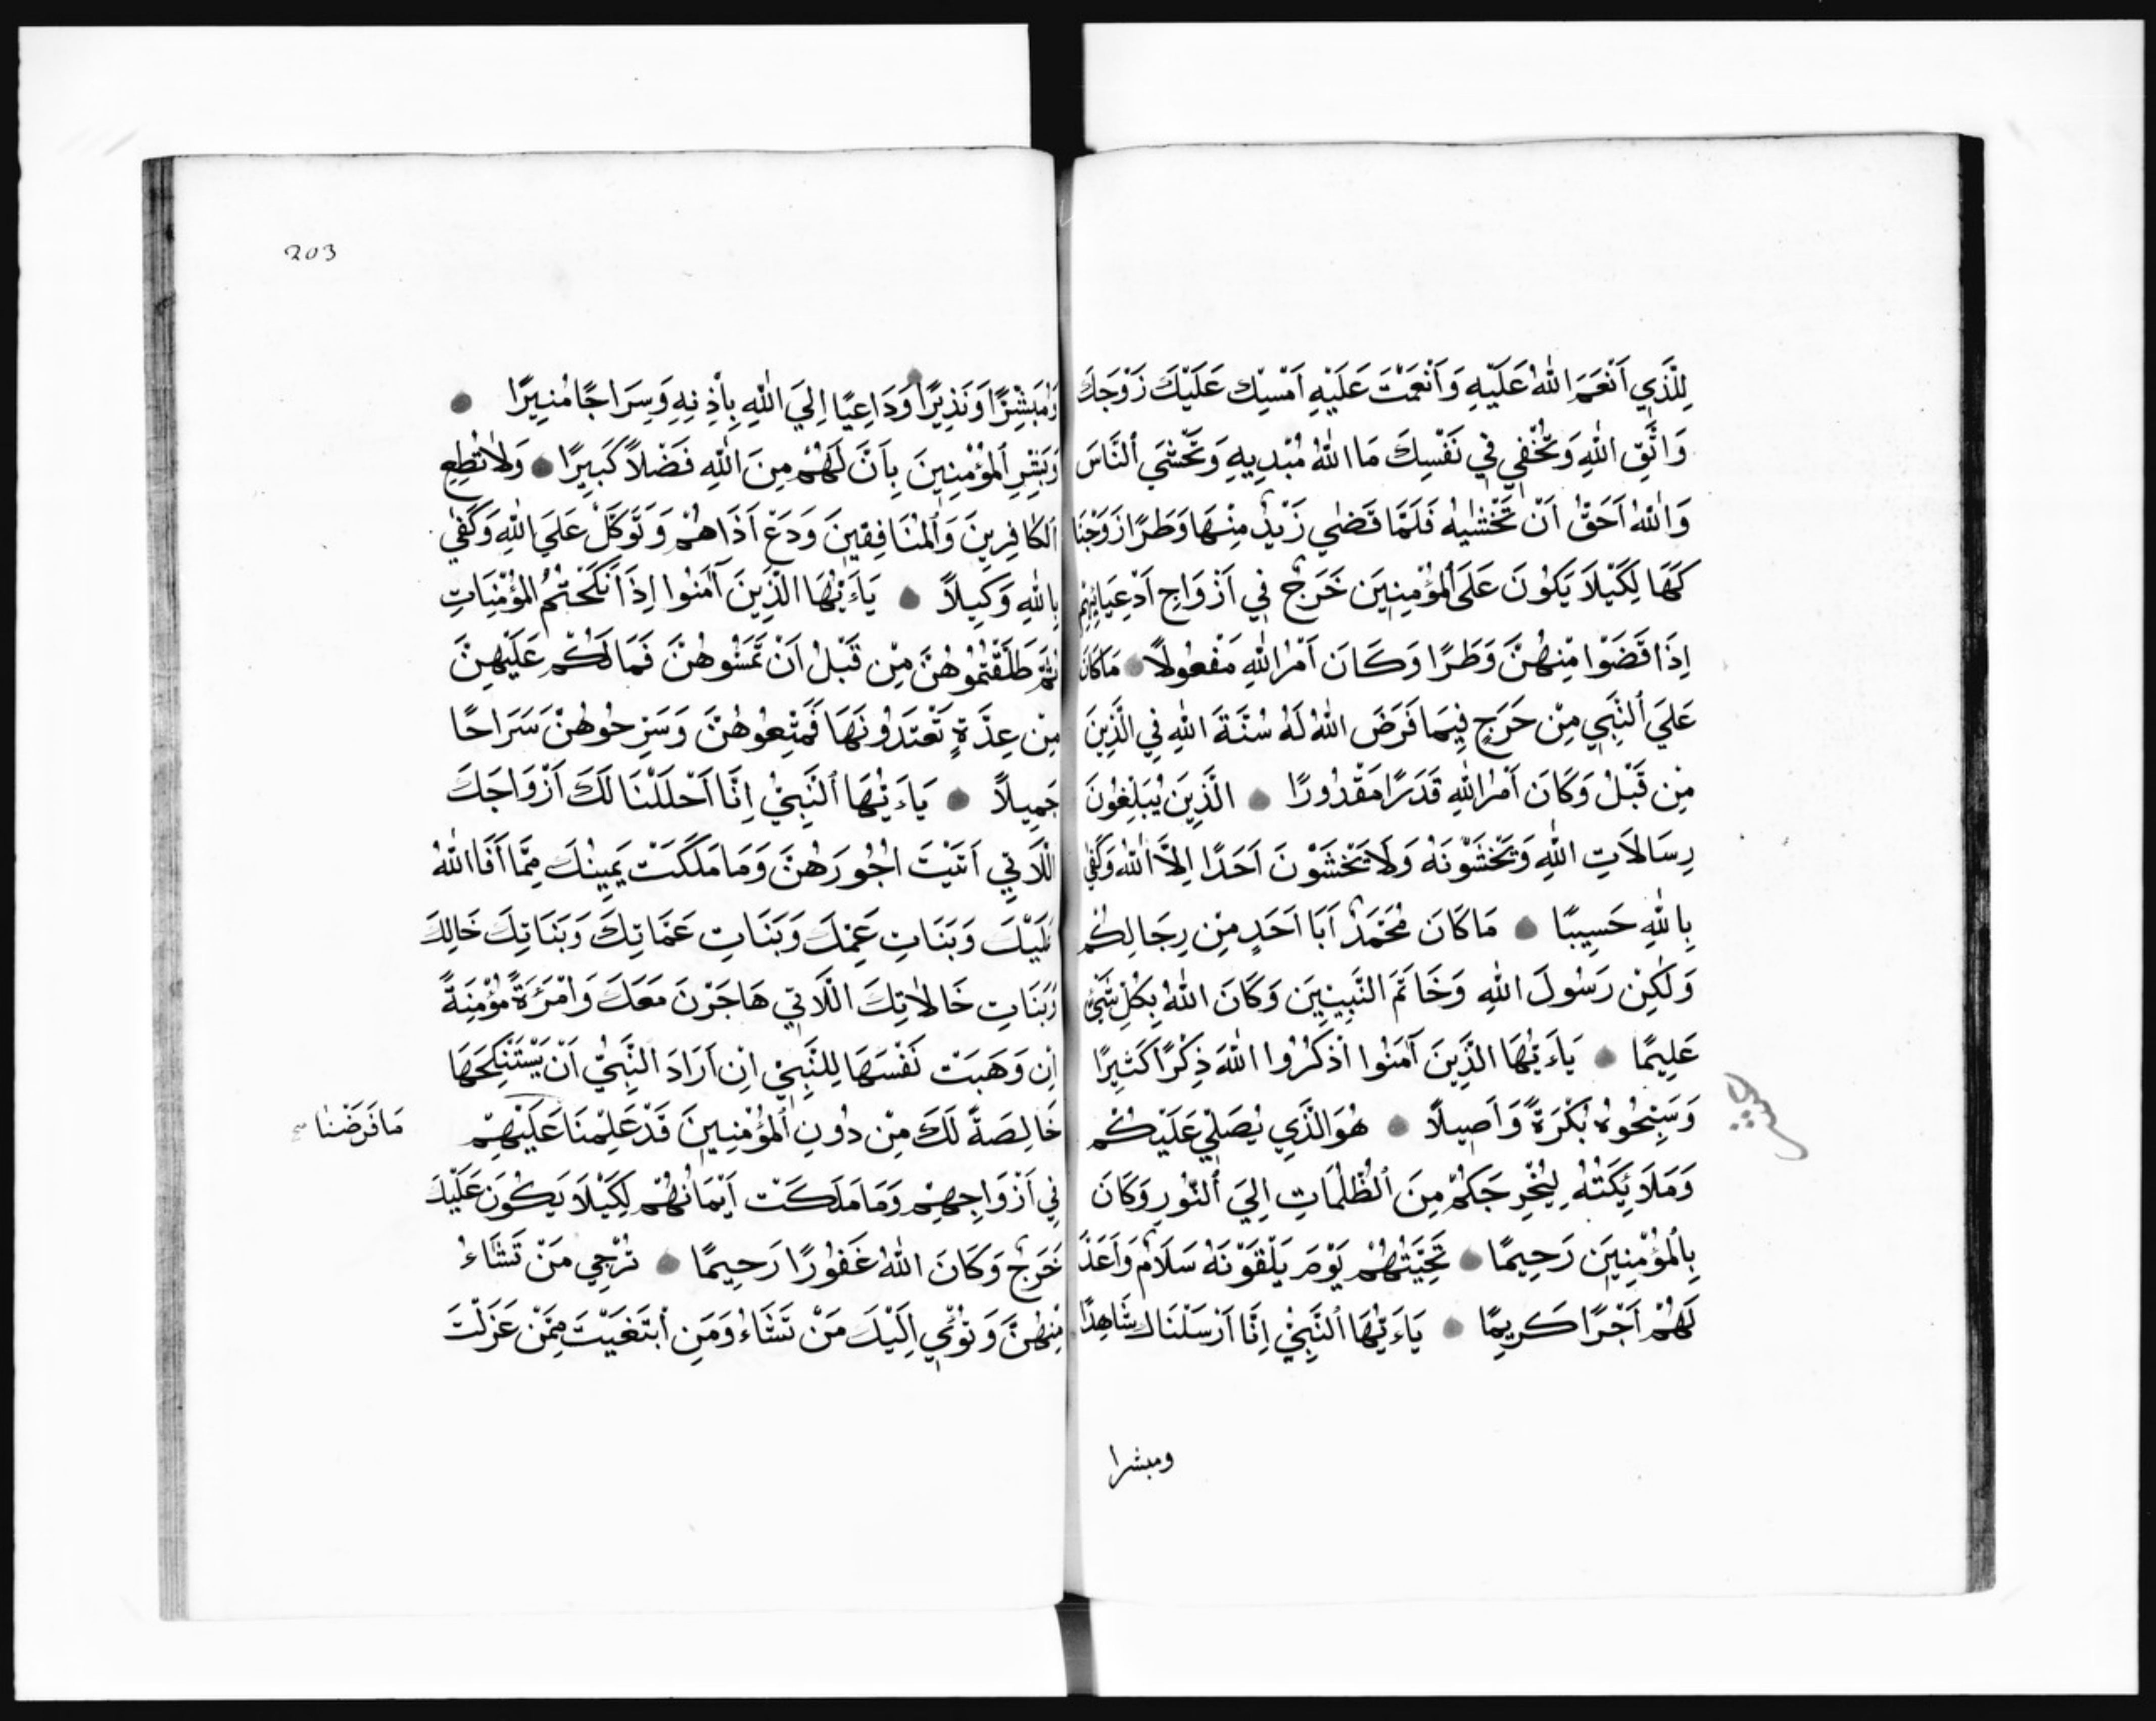 لِلَّذِي اَنْعَمَ اللهُ عَلَيْهِ وَاَنْعَمْتَ عَلَيْهِ اَمْسِكْ عَلَيْكَ زَوْجَكَ
وَاتَّقِ اللهِ وَتُخْفِي فِي نَفْسِكَ مَا اللهُ مُبْدِيهِ وَتَخْشَي النَّاسَ
وَاللهُ اَحَقُّ اَنْ تَخْشٰيهُ فَلَمَّا قَضٰي زَيْدٌ مِنْهَا وَطَرًا زَوَّجْنَا
كَهَا لِكَيْلَا يَكُونَ عَلَي الْمُؤْمِنِينَ حَرَجٌ فِي اَزْوَاجِ اَدْعِيَائِهِمْ
اِذَا قَضَوْا مِنْهُنَّ وَطَرًا وَكَانَ اَمْرُ اللهِ مَفْعُولًا مَاكَانَ
عَلَي النَّبِيِ مِنْ حَرَجٍ فِيمَا فَرَضَ اللهُ لَهُ سُنَّةَ اللهِ فِي الَّذِينَ
مِنْ قَبْلُ وَكَانَ اَمْرُ اللهِ قَدَرًا مَقْدُورًا الَّذِينَ يُبَلِّغُونَ
رِسَالَاتِ اللهِ وَيَخْشَوْنَهُ وَلَا يَخْشَوْنَ اَحَدًا اِلَّا اللهُ وَكَفٰي
بِاللهِ حَسِيبًا مَاكَانَ مُحَمَّدٌ اَبَا اَحَدٍ مِنْ رِجَالِكُمْ
وَلٰكِنْ رَسُولَ اللهِ وَخَاتَمَ النَّبِيِينَ وَكَانَ اللهُ بِكُلِّ شَيْئٍ
عَلِيمًا يَاءَيُّهَا الَّذِينَ آمَنُوا اذْكُرُوا اللهَ ذِكْرًا كَثِيرًا
وَسَبِّحُوهُ بُكْرَةً وَاَصِيلًا هُوَ الَّذِي يُصَلِّي عَلَيْكُمْ
وَمَلَائِكَتُهُ لِيُخْرِجَكُمْ مِنَ الظُّلُمَاتِ اِلَي النُّورِ وَكَانَ
بِالْمُؤْمِنِينَ رَحِيمًا تَحِيَّتُهُمْ يَوْمَ يَلْقَوْنَهُ سَلَامٌ وَاَعَدَّ
لَهُمْ اَجْرًا كَرِيمًا يَاءَيُّهَا النَّبِيُّ اِنَّا اَرْسَلْنَاكَ شَاهِدًا
ومبشرا
203
وَمُبَشِّرًا وَنَذِيرًا وَدَاعِيًا اِلَي اللهِ بِاِذْنِهِ وَسِرَاجًا مُنِيرًا
وَبَشِّرِ الْمُؤْمِنِينَ بِاَنَّ لَهُمْ مِنَ اللهِ فَضْلاً كَبِيرًا وَلَا تُطِعِ
الْكَافِرِينَ وَالْمُنَافِقِينَ وَدَعْ اَذَاهُمْ وَتَوَكَّلْ عَلَي اللهِ وَكَفٰي
بِاللهِ وَكِيلاً يَاءَيُّهَا الَّذِينَ آمَنُوا اِذَا نَكَحْتُمُ الْمُؤْمِنَاتِ
ثُمَّ طَلَّقْتُمُوهُنَّ مِنْ قَبْلُ اَنْ تَمَسُّوهُنَّ فَمَا لَكُمْ عَلَيْهِنَّ
مِنْ عِدَّةٍ تَعْتَدُّونَهَا فَمَتِّعُوهُنَّ وَسَرِّحُوهُنَّ سَرَاحًا
جَمِيلاً يَاءَيُّهَا النَّبِيُّ اِنَّا اَحْلَلْنَا لَكَ اَزْوَاجَكَ
اللَّاتِي اَتَيْتَ اُجُورَهُنَّ وَمَا مَلَكَتْ يَمِينُكَ مِمَّا اَفَا اللهُ
عَلَيْكَ وَبَنَاتِ عَمِّكَ وَبَنَاتِ عَمَّاتِكَ وَبَنَاتِكَ خَالِكَ
وَبَنَاتِ خَالَاتِكَ اللَّاتِي هَاجَرْنَ مَعَكَ وَامْرَئَةً مُؤْمِنَةً
اِنْ وَهَبَتْ نَفْسَهَا لِلنَّبِيِّ اِنْ اَرَادَ النَّبِيُّ اَنْ يَسْتَنْكِحَهَا
خَالِصَةً لَكَ مِنْ دُونِ الْمُؤْمِنِينَ قَدْ عَلِمْنَا عَلَيْهِمْ
مَا فَرَضْنَا صح
فِي اَزْوَاجِهِمْ وَمَا مَلَكَتْ اَيْمَانُهُمْ لِكَيْلَا يَكُونَ عَلَيْكَ
حَرَجٌ وَكَانَ اللهُ غَفُورًا رَحِيمًا تُرْجِي مَنْ تَشَاءُ
مِنْهُنَّ وَتُؤْيِ اِلَيْكَ مَنْ تَشَاءُ وَمَنِ ابْتَغَيْتَ مِمَّنْ عَزَلْتَ